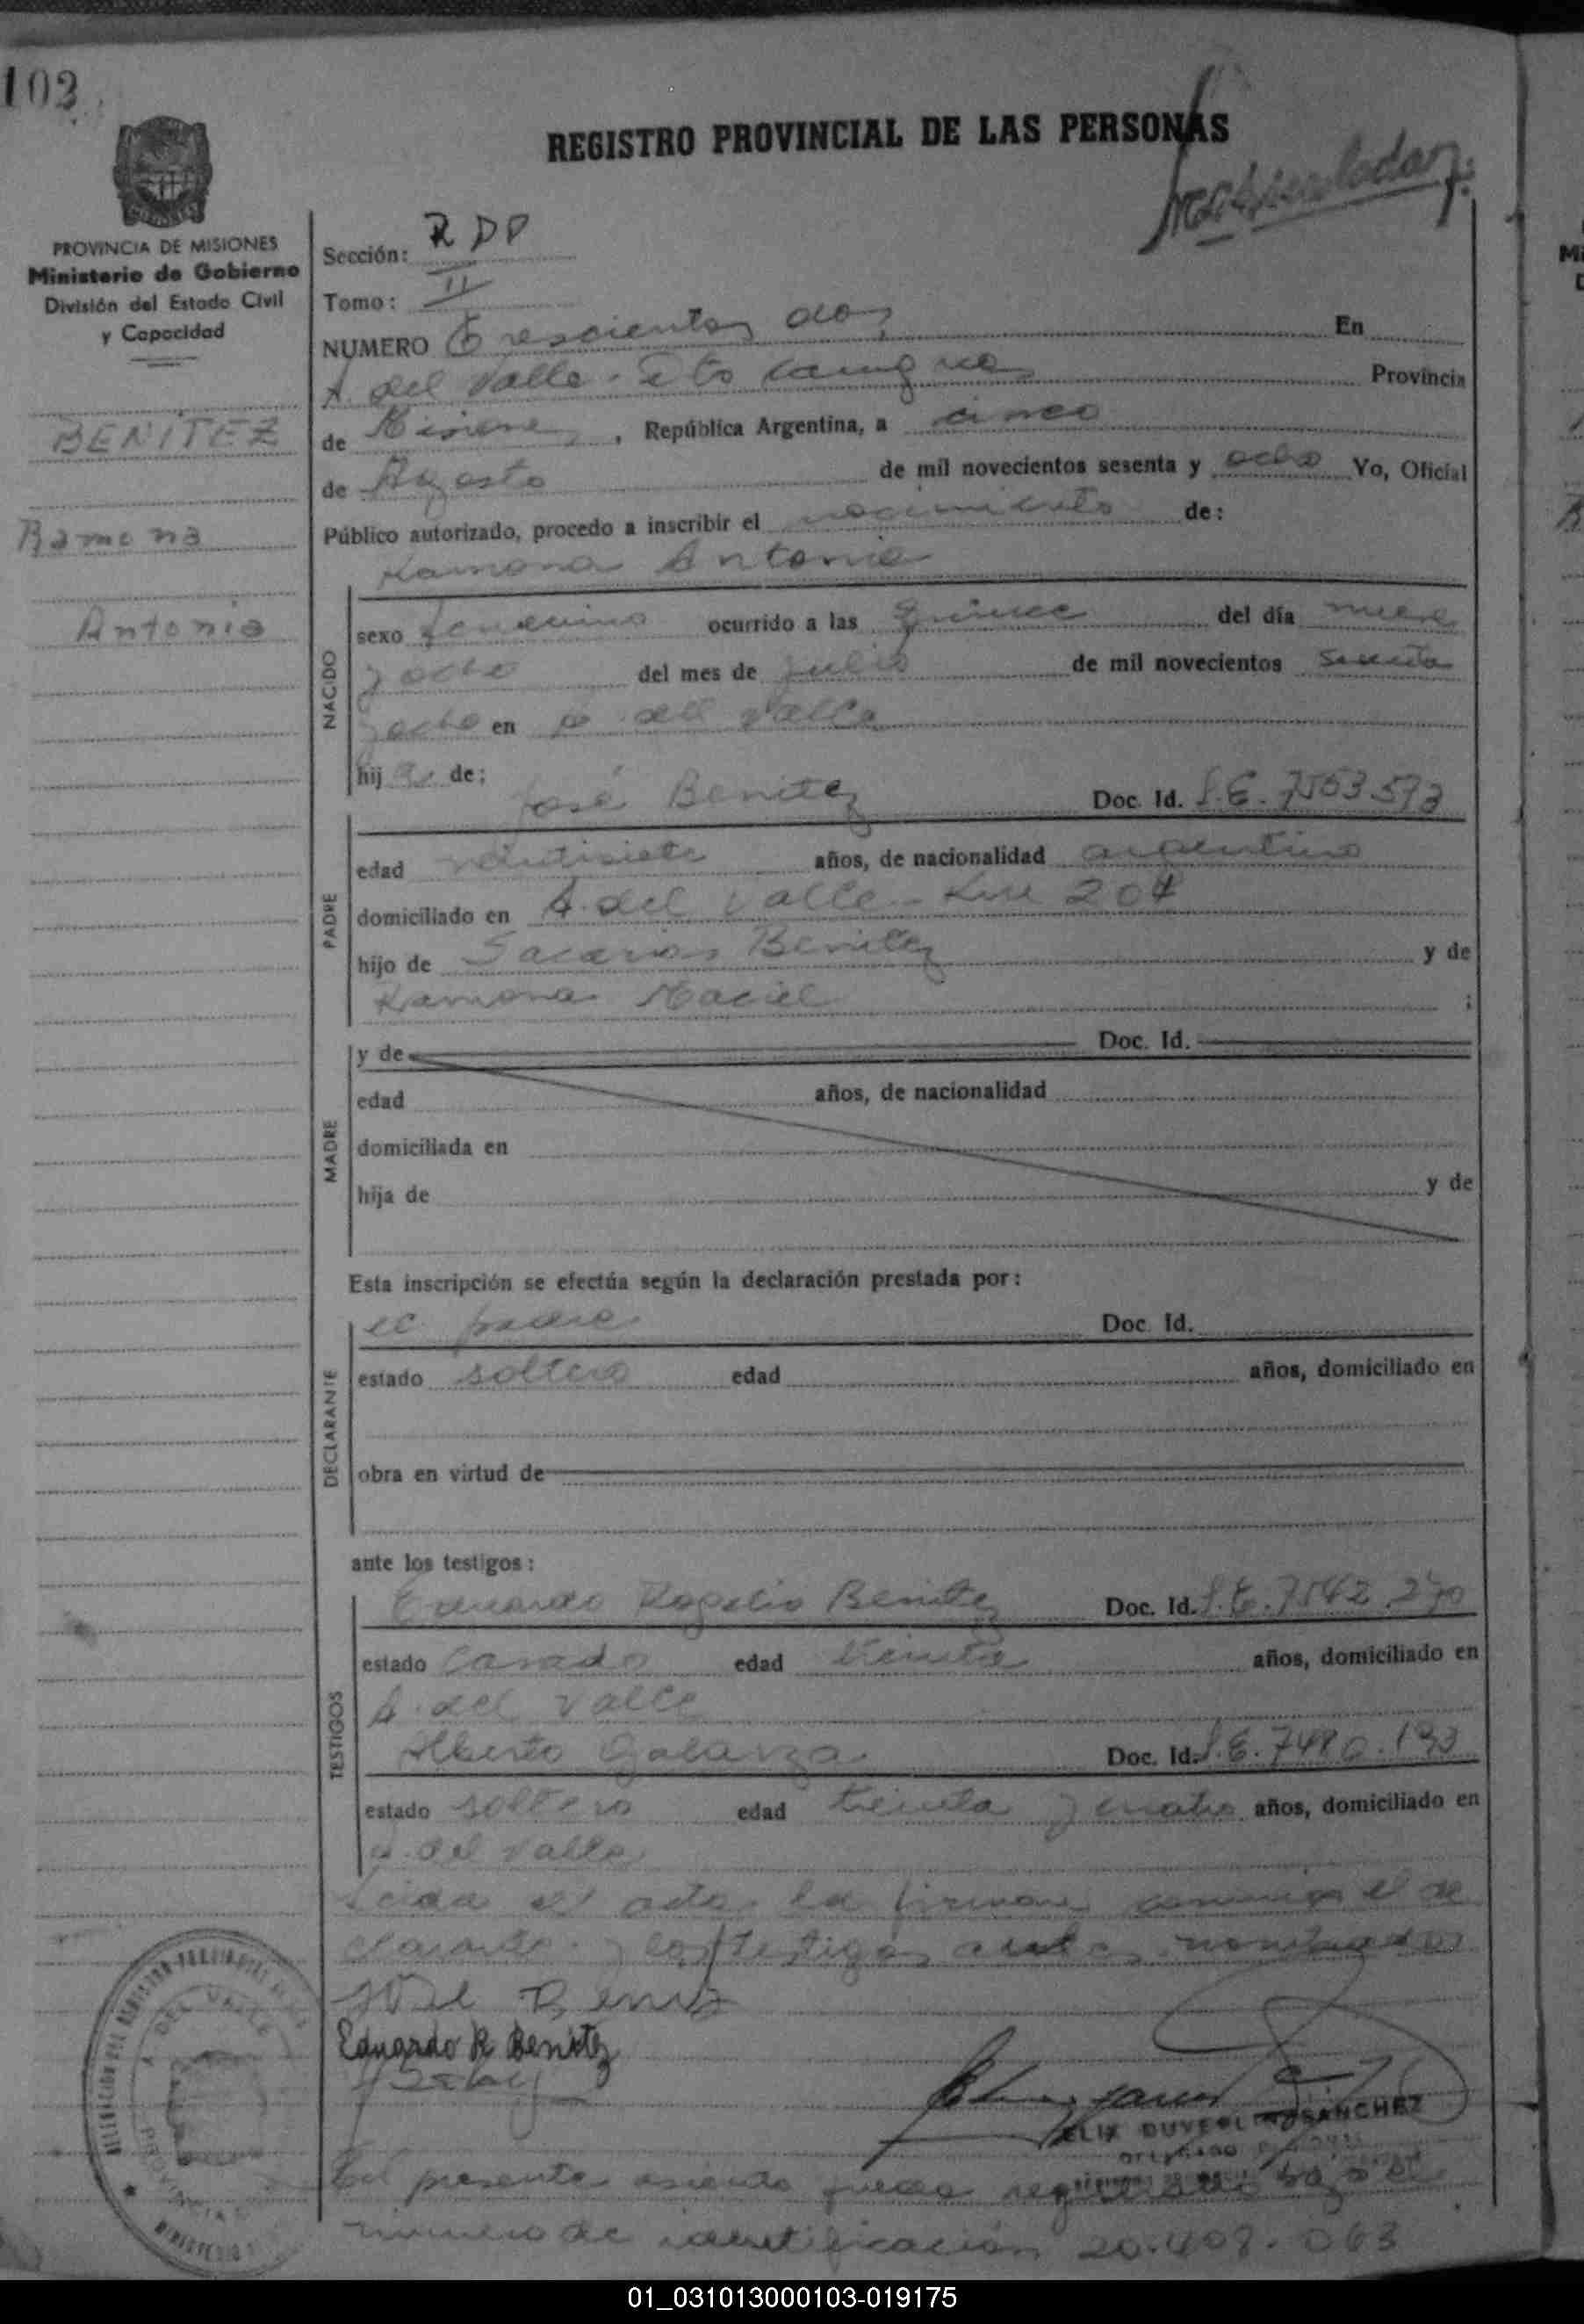 102
REGISTRO PROVINCIAL DE LAS PERSONAS
PROVINCIA DE MISIONES
Ministerio de Gobierno
División del Estado Civil
y Capacidad
BENITEZ
Ramona
Antonia
Sección: R D P
Tomo: II
NUMERO Trescientos dos En
A. del Valle Provincia
de Misiones, República Argentina, a cinco
de Agosto de mil novecientos sesenta y ocho Yo, Oficial
Público autorizado, procedo a inscribir el nacimiento de:
Ramona Antonia
NACIDO
sexo femenino ocurrido a las quince del día
y ocho del mes de julio de mil novecientos sesenta
y ocho en A. del Valle
hija de:
PADRE
José Benitez Doc. Id. L.E. 7553.593
edad veintisiete años, de nacionalidad argentino
domiciliado en A. del Valle - Km 207
hijo de Sacarias Benitez y de
Ramona Maciel ;
MADRE
y de Doc. Id.
edad años, de nacionalidad
domiciliada en
hija de y de
Esta inscripción se efectúa según la declaración prestada por:
DECLARANTE
el padre Doc. Id.
estado soltero edad años, domiciliado en
obra en virtud de
ante los testigos:
TESTIGOS
Eduardo Rogelio Benitez Doc. Id. L.E. 7542.270
estado casado edad treinta años, domiciliado en
A. del Valle
Alberto Galarza Doc. Id. L.E. 7480.193
estado soltero edad treinta y cuatro años, domiciliado en
A. del Valle
Leida el acta la firman conmigo el de
clarante y los testigos antes nombrados
Eduardo R Benitez
SANCHEZ
El presente asiento queda registrado bajo el
número de identificación 20.408.063
01_031013000103-019175